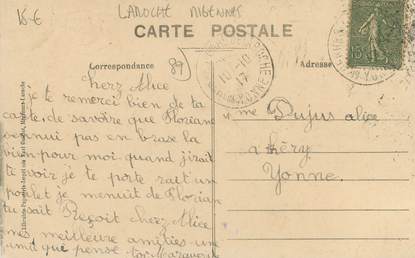 15 €
LAROCHE MIGENNES
CARTE POSTALE
Correspondance
89
Adresse
cherz Alice
je te remerci bien de ta
carte, de savoire que Floriane
venui pas en brase la
bien pour moi quand j'irait
te voir je te porte rait un
poulet je menuit de Florian
tu sait Reçoit cherz Alice
mes meilleure amitiés une
ami qui pense
me Dujus alice
a héry
Yonne.